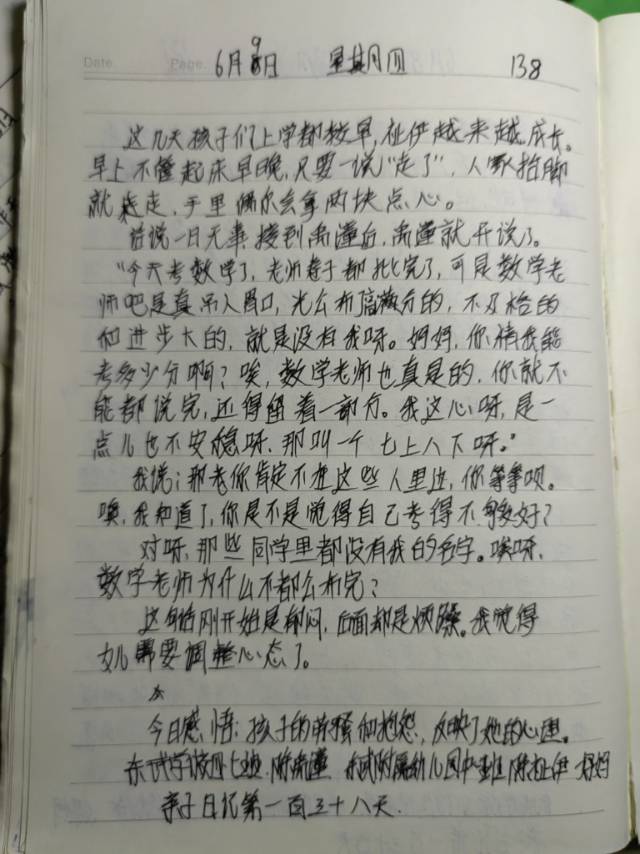 Date Page 6月9日 星期四 138
这几天孩子们上学都较早，祉伊越来越成长。
早上不懂起床早晚，只要一说“走了”，人家抬脚
就走，手里偶尔会拿两块点心。
话说一日无事接到禹瑾后，禹瑾就开说了。
“今天考数学了，老师卷子都批完了，可是数学老
师吧是真吊人胃口，光公布高满分的，不及格的
和进步大的，就是没有我呀。妈妈，你猜我能
考多少分啊？唉，数学老师也真是的，你就不
能都说完，还得留着一部分。我这心呀，是一
点儿也不安稳呀，那叫一个七上八下呀。”
我说：那老你肯定不在这些人里边，你等等呗。
噢，我知道了，你是不是觉得自己考得不够好？
对呀，那些同学里都没有我的名字。唉呀，
数学老师为什么不都公布完？
这句话刚开始是郁闷，后面却是烦躁。我觉得
女儿需要调整心态了。
今日感悟：孩子的牢骚和抱怨，反映了她的心理。
禹瑾 幼儿园中班 祉伊 妈妈
亲子日记第一百三十八天.